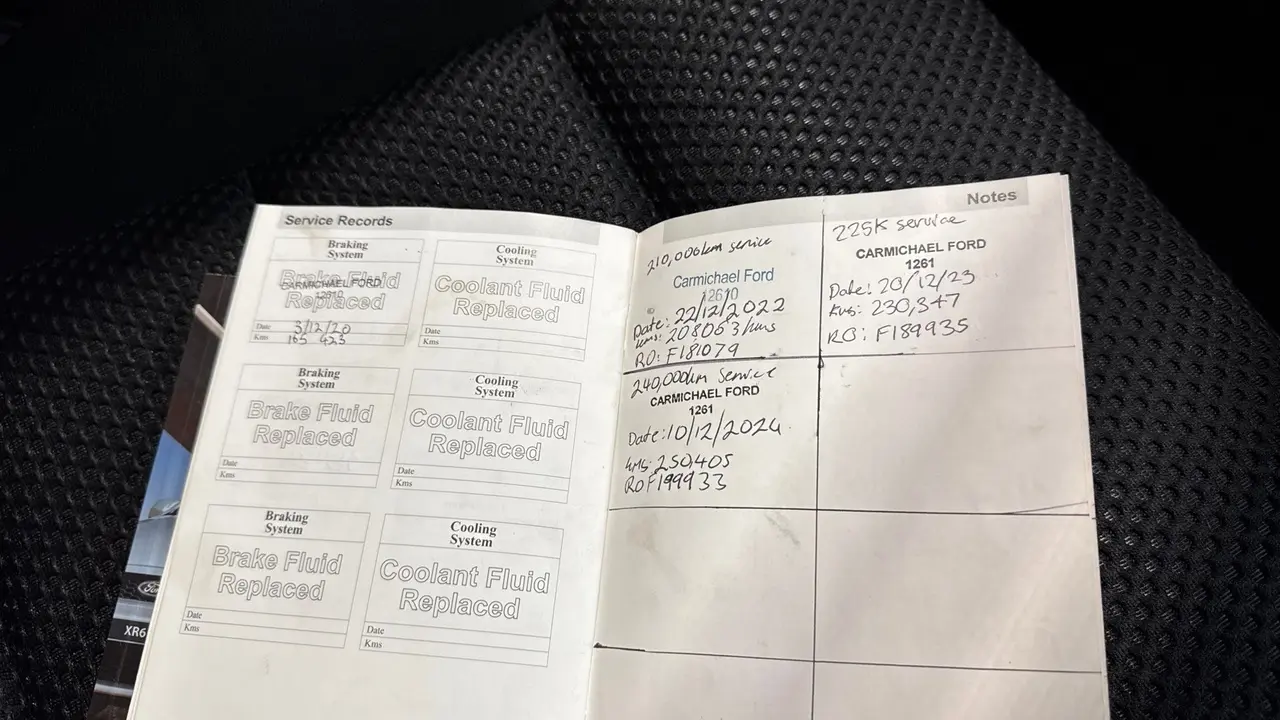 Service Records
Braking
System
Brake Fluid
Replaced
CARMICHAEL FORD
12610
Date 3/12/20
Kms 165 423
Cooling
System
Coolant Fluid
Replaced
Date
Kms
Braking
System
Brake Fluid
Replaced
Date
Kms
Cooling
System
Coolant Fluid
Replaced
Date
Kms
Braking
System
Brake Fluid
Replaced
Date
Kms
Cooling
System
Coolant Fluid
Replaced
Date
Kms
Notes
210,000km service
Carmichael Ford
12610
Date: 22/12/2022
kms: 208063 kms
RO: F181079
225K service
CARMICHAEL FORD
1261
Date: 20/12/23
Kms: 230,347
RO: F189935
240,000km Service
CARMICHAEL FORD
1261
Date: 10/12/2024
kms: 250,405
RO F199933
Ford
XR6